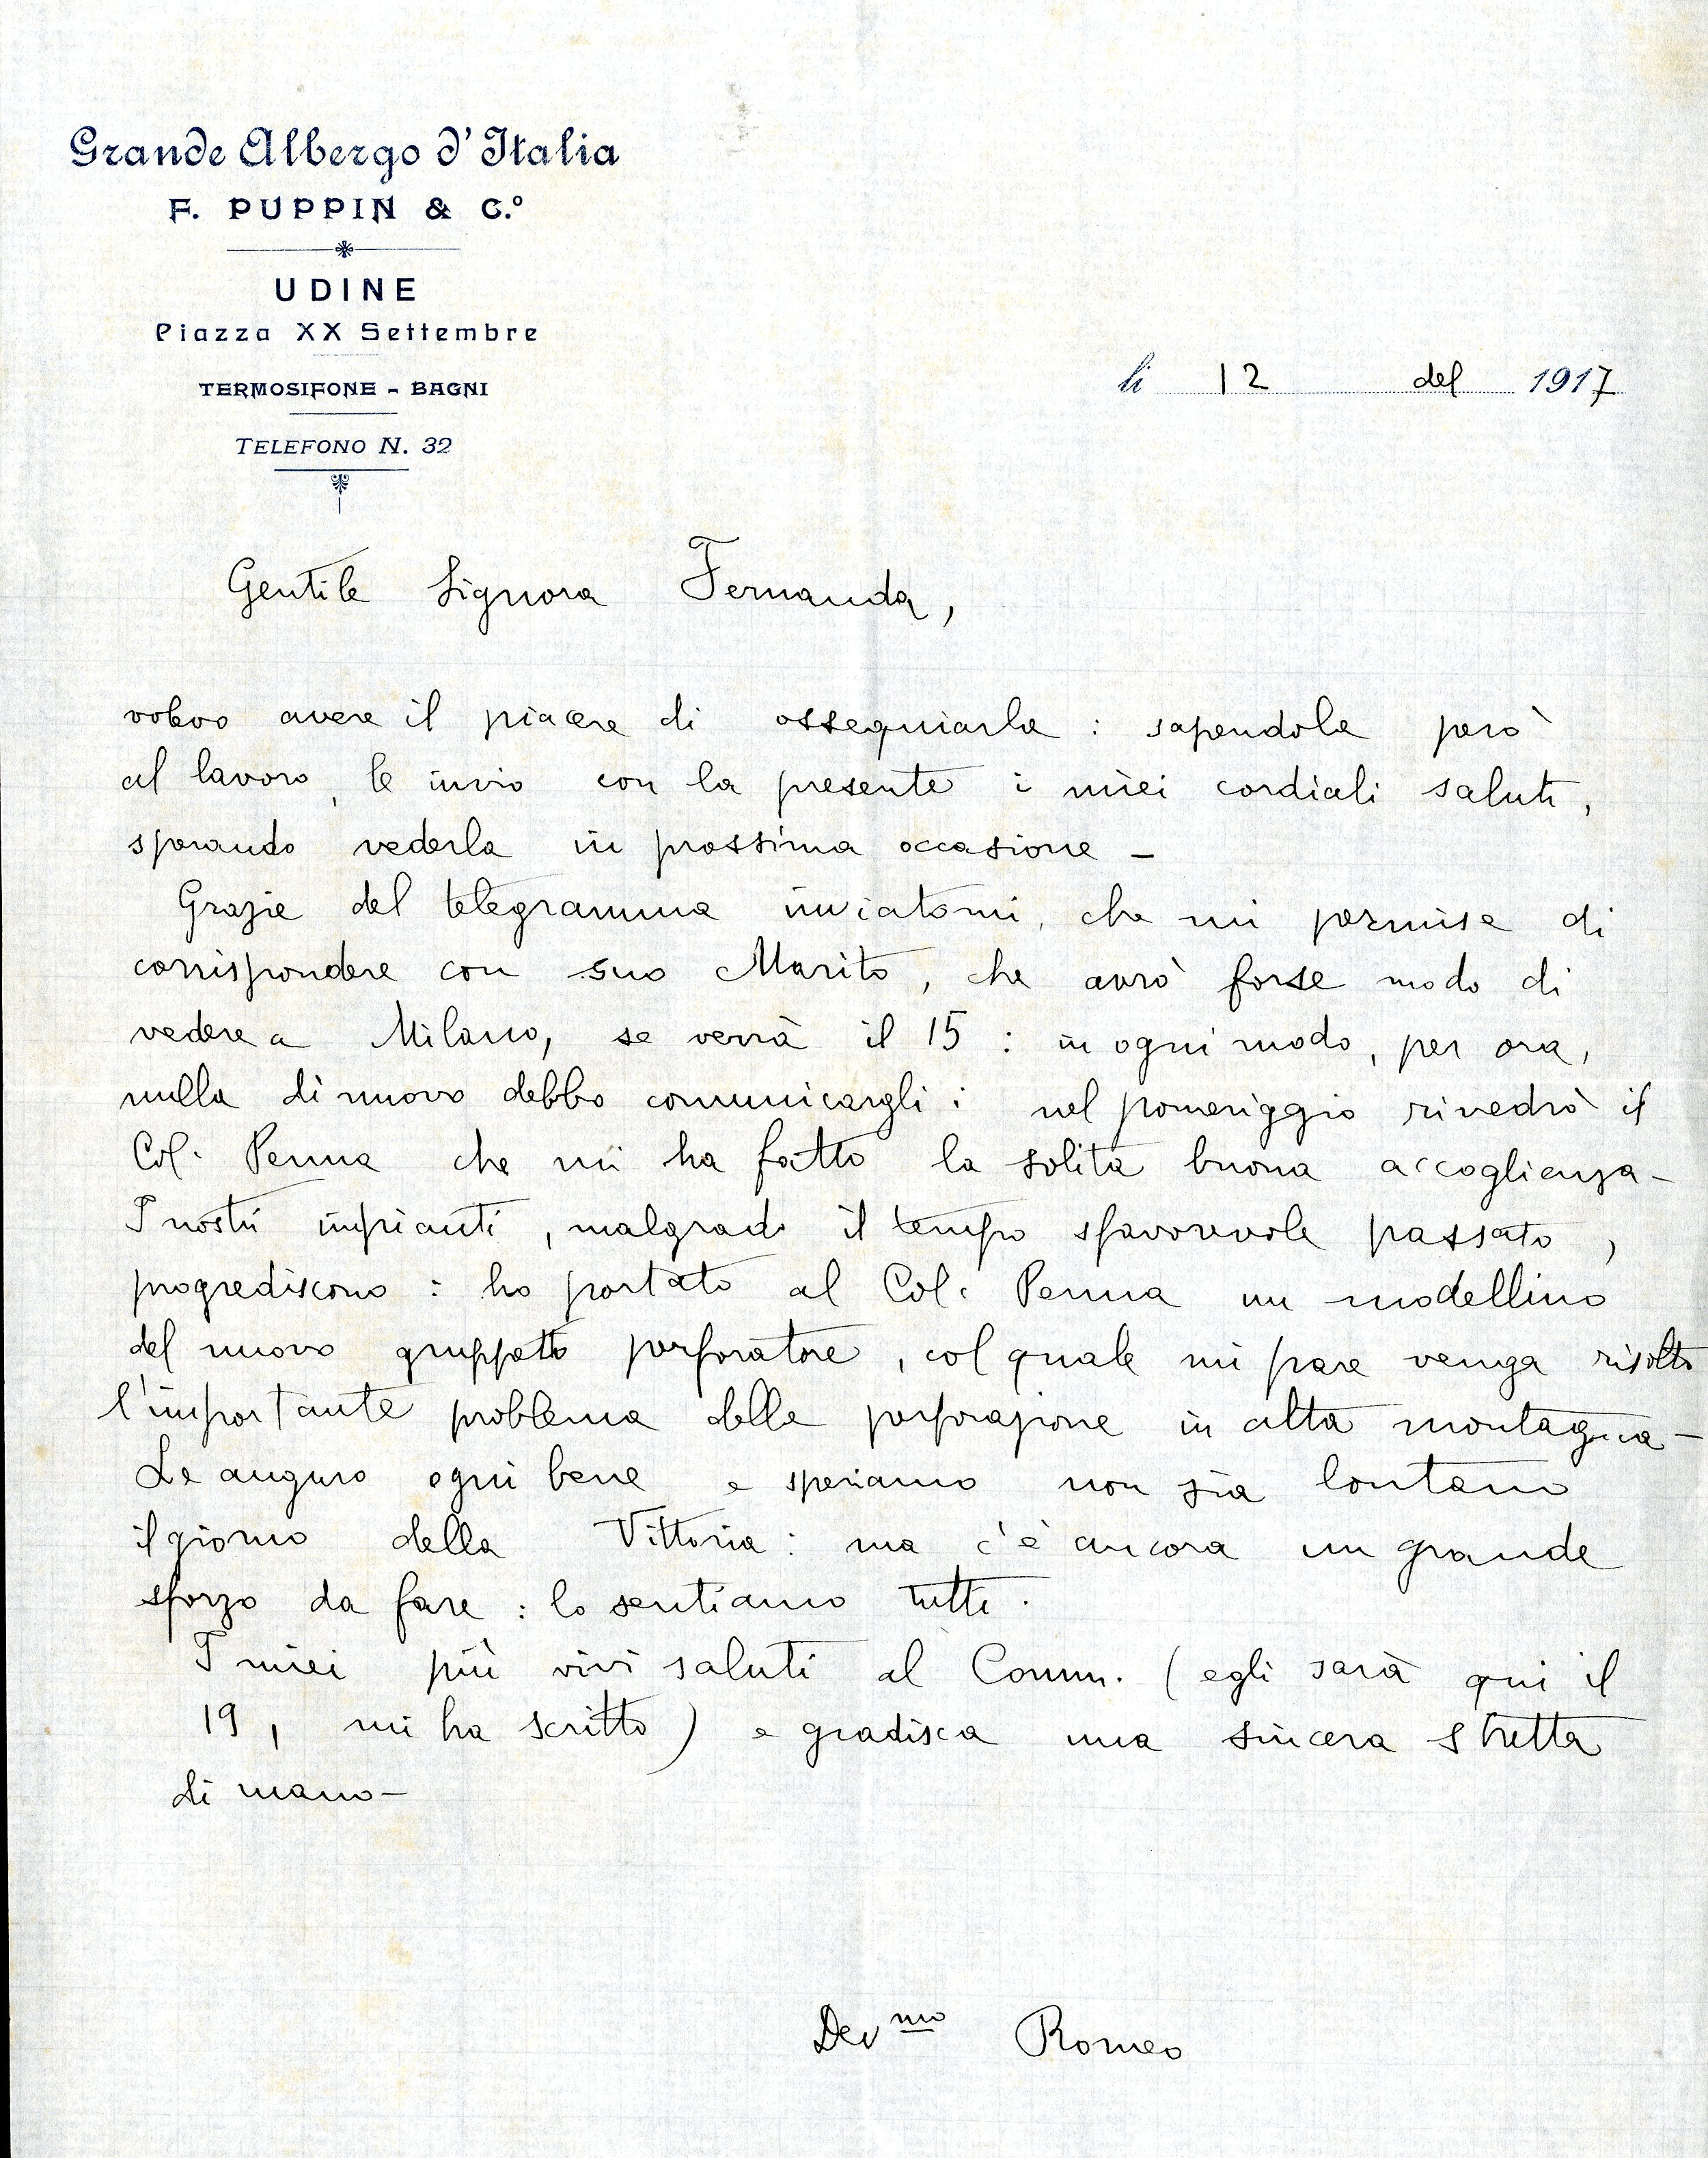 Grande Albergo d'Italia
F. PUPPIN & C.º
UDINE
Piazza XX Settembre
TERMOSIFONE - BAGNI
TELEFONO N. 32
li 12 del 1917
Gentile Signora Fernanda,
volevo avere il piacere di ossequiarla : sapendola però
al lavoro, le invio con la presente i miei cordiali saluti,
sperando vederla in prossima occasione -
Grazie del telegramma inviatomi, che mi permise di
corrispondere con suo Marito, che avrò forse modo di
vedere a Milano, se verrà il 15 : in ogni modo, per ora,
nulla di nuovo debbo comunicargli : nel pomeriggio rivedrò il
Col. Penna che mi ha fatto la solita buona accoglienza -
I nostri impianti, malgrado il tempo sfavorevole passato,
progrediscono : ho portato al Col. Penna un modellino
del nuovo gruppetto perforatore, col quale mi pare venga risolto
l'importante problema della perforazione in alta montagna -
Le auguro ogni bene e speriamo non sia lontano
il giorno della Vittoria : ma c'è ancora un grande
sforzo da fare : lo sentiamo tutti.
I miei più vivi saluti al Comm. (egli sarà qui il
19, mi ha scritto) e gradisca una sincera stretta
di mano -
Dev mo Romeo